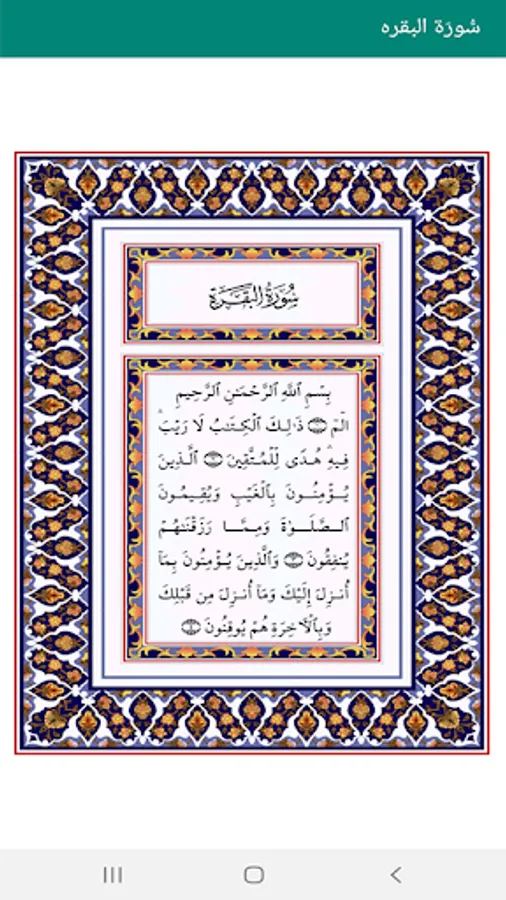 سُورَة البقره
سُورَةُ البَقَرَةِ
بِسْمِ ٱللَّهِ ٱلرَّحْمَٰنِ ٱلرَّحِيمِ
الٓمٓ ۝١ ذَٰلِكَ ٱلْكِتَٰبُ لَا رَيْبَ ۛ
فِيهِ ۛ هُدًى لِّلْمُتَّقِينَ ۝٢ ٱلَّذِينَ
يُؤْمِنُونَ بِٱلْغَيْبِ وَيُقِيمُونَ
ٱلصَّلَوٰةَ وَمِمَّا رَزَقْنَٰهُمْ
يُنفِقُونَ ۝٣ وَٱلَّذِينَ يُؤْمِنُونَ بِمَآ
أُنزِلَ إِلَيْكَ وَمَآ أُنزِلَ مِن قَبْلِكَ
وَبِٱلْأَخِرَةِ هُمْ يُوقِنُونَ ۝٤